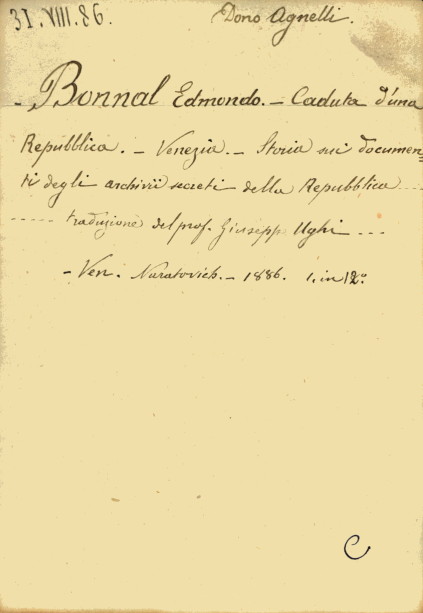 31.VIII.86.
Dono Agnelli.
- Bonnal Edmondo. - Caduta d'una
Repubblica. - Venezia. - Storia sui documen=
ti degli archivii secreti della Repubblica ....
----- traduzione del prof. Giusepp. Ughi ...
- Ven. Naratovich. - 1886. 1. in 12°.
C